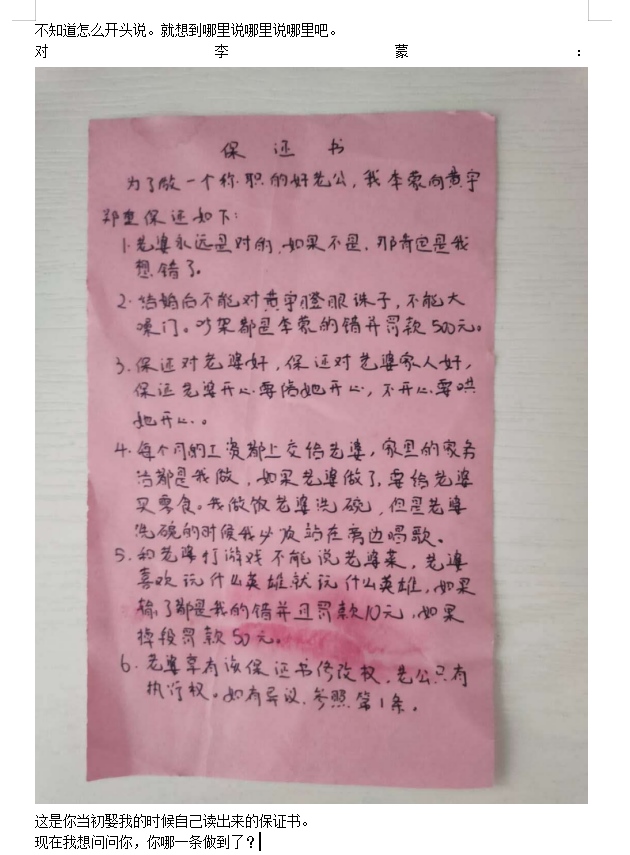 不知道怎么开头说。就想到哪里说哪里说哪里吧。
对 李 蒙 ：
保 证 书
为了做一个称职的好老公，我李蒙向黄宇
郑重保证如下：
1. 老婆永远是对的，如果不是，那肯定是我
想错了。
2. 结婚后不能对黄宇瞪眼珠子，不能大
嗓门。吵架都是李蒙的错并罚款500元。
3. 保证对老婆好，保证对老婆家人好，
保证老婆开心要陪她开心，不开心要哄
她开心。
4. 每个月的工资都上交给老婆，家里的家务
活都是我做，如果老婆做了，要给老婆
买零食。我做饭老婆洗碗，但是老婆
洗碗的时候我必须站在旁边唱歌。
5. 和老婆打游戏不能说老婆菜，老婆
喜欢玩什么英雄就玩什么英雄，如果
输了都是我的错并且罚款10元，如果
掉段罚款50元。
6. 老婆享有该保证书修改权，老公只有
执行权。如有异议，参照第1条。
这是你当初娶我的时候自己读出来的保证书。
现在我想问问你，你哪一条做到了？